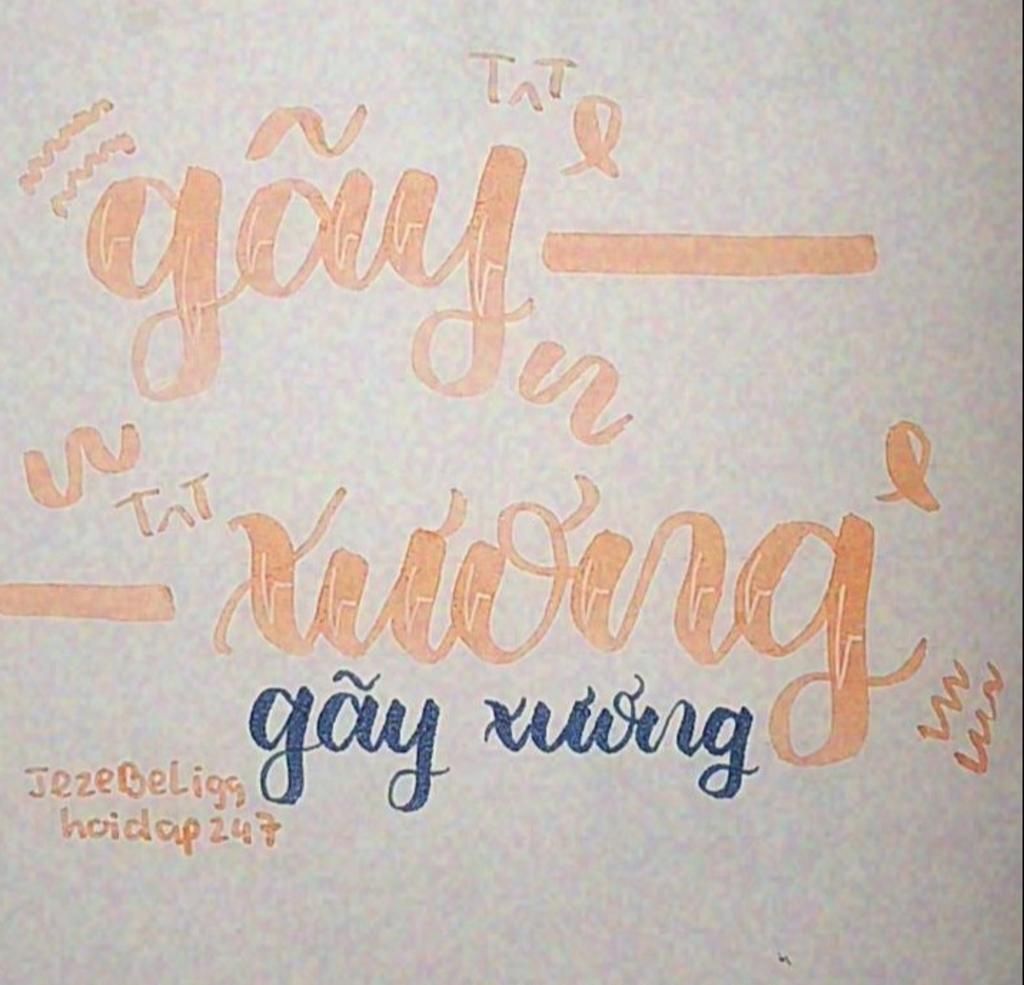 TnT
gãy
TnT
xương
gãy xương
JezeBeligg
hoidap247